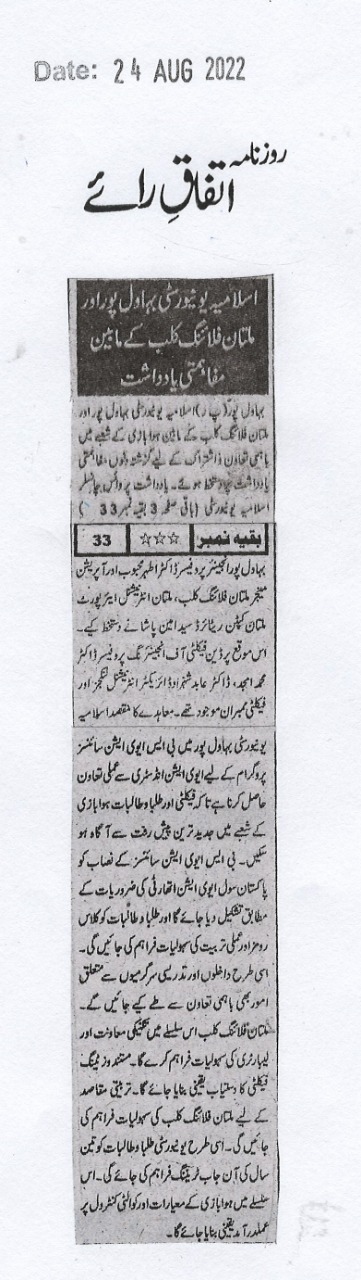 Date: 24 AUG 2022
روزنامہ
اتفاقِ رائے
اسلامیہ یونیورسٹی بہاول پور اور
ملتان فلائنگ کلب کے مابین
مفاہمتی یادداشت
بہاول پور (پ ر) اسلامیہ یونیورسٹی بہاول پور اور
ملتان فلائنگ کلب کے مابین ہوابازی کے شعبے میں
باہمی تعاون و اشتراک کے لیے گزشتہ دنوں مفاہمتی
یادداشت پر دستخط ہوئے۔ یادداشت پر وائس چانسلر
اسلامیہ یونیورسٹی (باقی صفحہ 3 بقیہ نمبر 33)
بقیہ نمبر ☆☆☆ 33
بہاول پور انجینئر پروفیسر ڈاکٹر اطہر محبوب اور آپریشن
منیجر ملتان فلائنگ کلب، ملتان انٹرنیشنل ایئرپورٹ
ملتان کیپٹن ریٹائرڈ سید امین پاشا نے دستخط کیے۔
اس موقع پر ڈین فیکلٹی آف انجینئرنگ پروفیسر ڈاکٹر
محمد امجد، ڈاکٹر عابد شہزاد ڈائریکٹر انٹرنیشنل لنکجز اور
فیکلٹی ممبران موجود تھے۔ معاہدے کا مقصد اسلامیہ
یونیورسٹی بہاول پور میں بی ایس ایوی ایشن سائنسز
پروگرام کے لیے ایوی ایشن انڈسٹری سے عملی تعاون
حاصل کرنا ہے تاکہ فیکلٹی اور طلبا و طالبات ہوابازی
کے شعبے میں جدید ترین پیش رفت سے آگاہ ہو
سکیں۔ بی ایس ایوی ایشن سائنسز کے نصاب کو
پاکستان سول ایوی ایشن اتھارٹی کی ضروریات کے
مطابق تشکیل دیا جائے گا اور طلبا و طالبات کو کلاس
رومز اور عملی تربیت کی سہولیات فراہم کی جائیں گی۔
اسی طرح داخلوں اور تدریسی سرگرمیوں سے متعلق
امور بھی باہمی تعاون سے طے کیے جائیں گے۔
ملتان فلائنگ کلب اس سلسلے میں تکنیکی معاونت اور
لیبارٹری کی سہولیات فراہم کرے گا۔ مستند وزیٹنگ
فیکلٹی کا دستیاب یقینی بنایا جائے گا۔ تربیتی مقاصد
کے لیے ملتان فلائنگ کلب کی سہولیات فراہم کی
جائیں گی۔ اسی طرح یونیورسٹی طلبا و طالبات کو تین
سال کی آن جاب ٹریننگ فراہم کی جائے گی۔ اس
سلسلے میں ہوابازی کے معیارات اور کوالٹی کنٹرول پر
عملدرآمد یقینی بنایا جائے گا۔